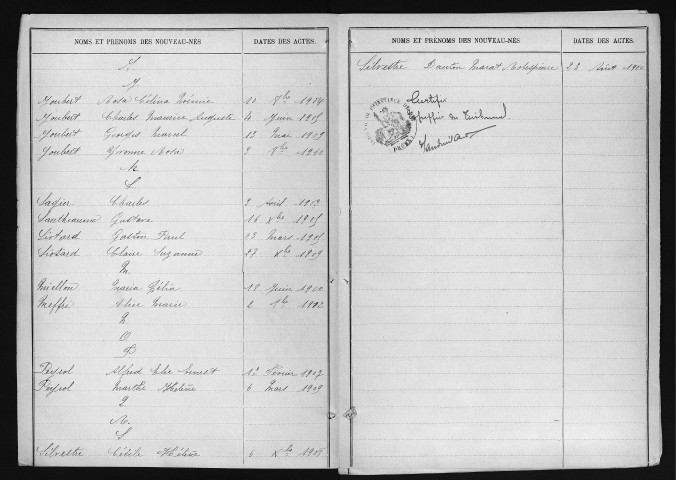 NOMS ET PRÉNOMS DES NOUVEAU-NÉS DATES DES ACTES.
J
Joubert Rosa Célina Noémie 10 8bre 1904
Joubert Charles Maurice Auguste 4 Juin 1905
Joubert Georges Marcel 13 Mai 1909
Joubert Yvonne Rosa 3 1910
K
L
Charles 2 Avril 1903
Gustave 16 Xbre 1905
Liotard Gaston Paul 23 Mars 1905
Liotard Claire Suzanne 27 Xbre 1909
M
Maria Délia 18 Juin 1910
Meffre Elise Marie 2 1902
N
O
P
Peyrol Alfred Elie Ernest 12 Février 1907
Peyrol Marthe Hélène 6 Mars 1909
Q
R
S
Silvestre Cécile Hélène 6 Xbre 1905
NOMS ET PRÉNOMS DES NOUVEAU-NÉS DATES DES ACTES.
Silvestre Danton Marat Robespierre 22 Août
Certifié
greffier du Tribunal.